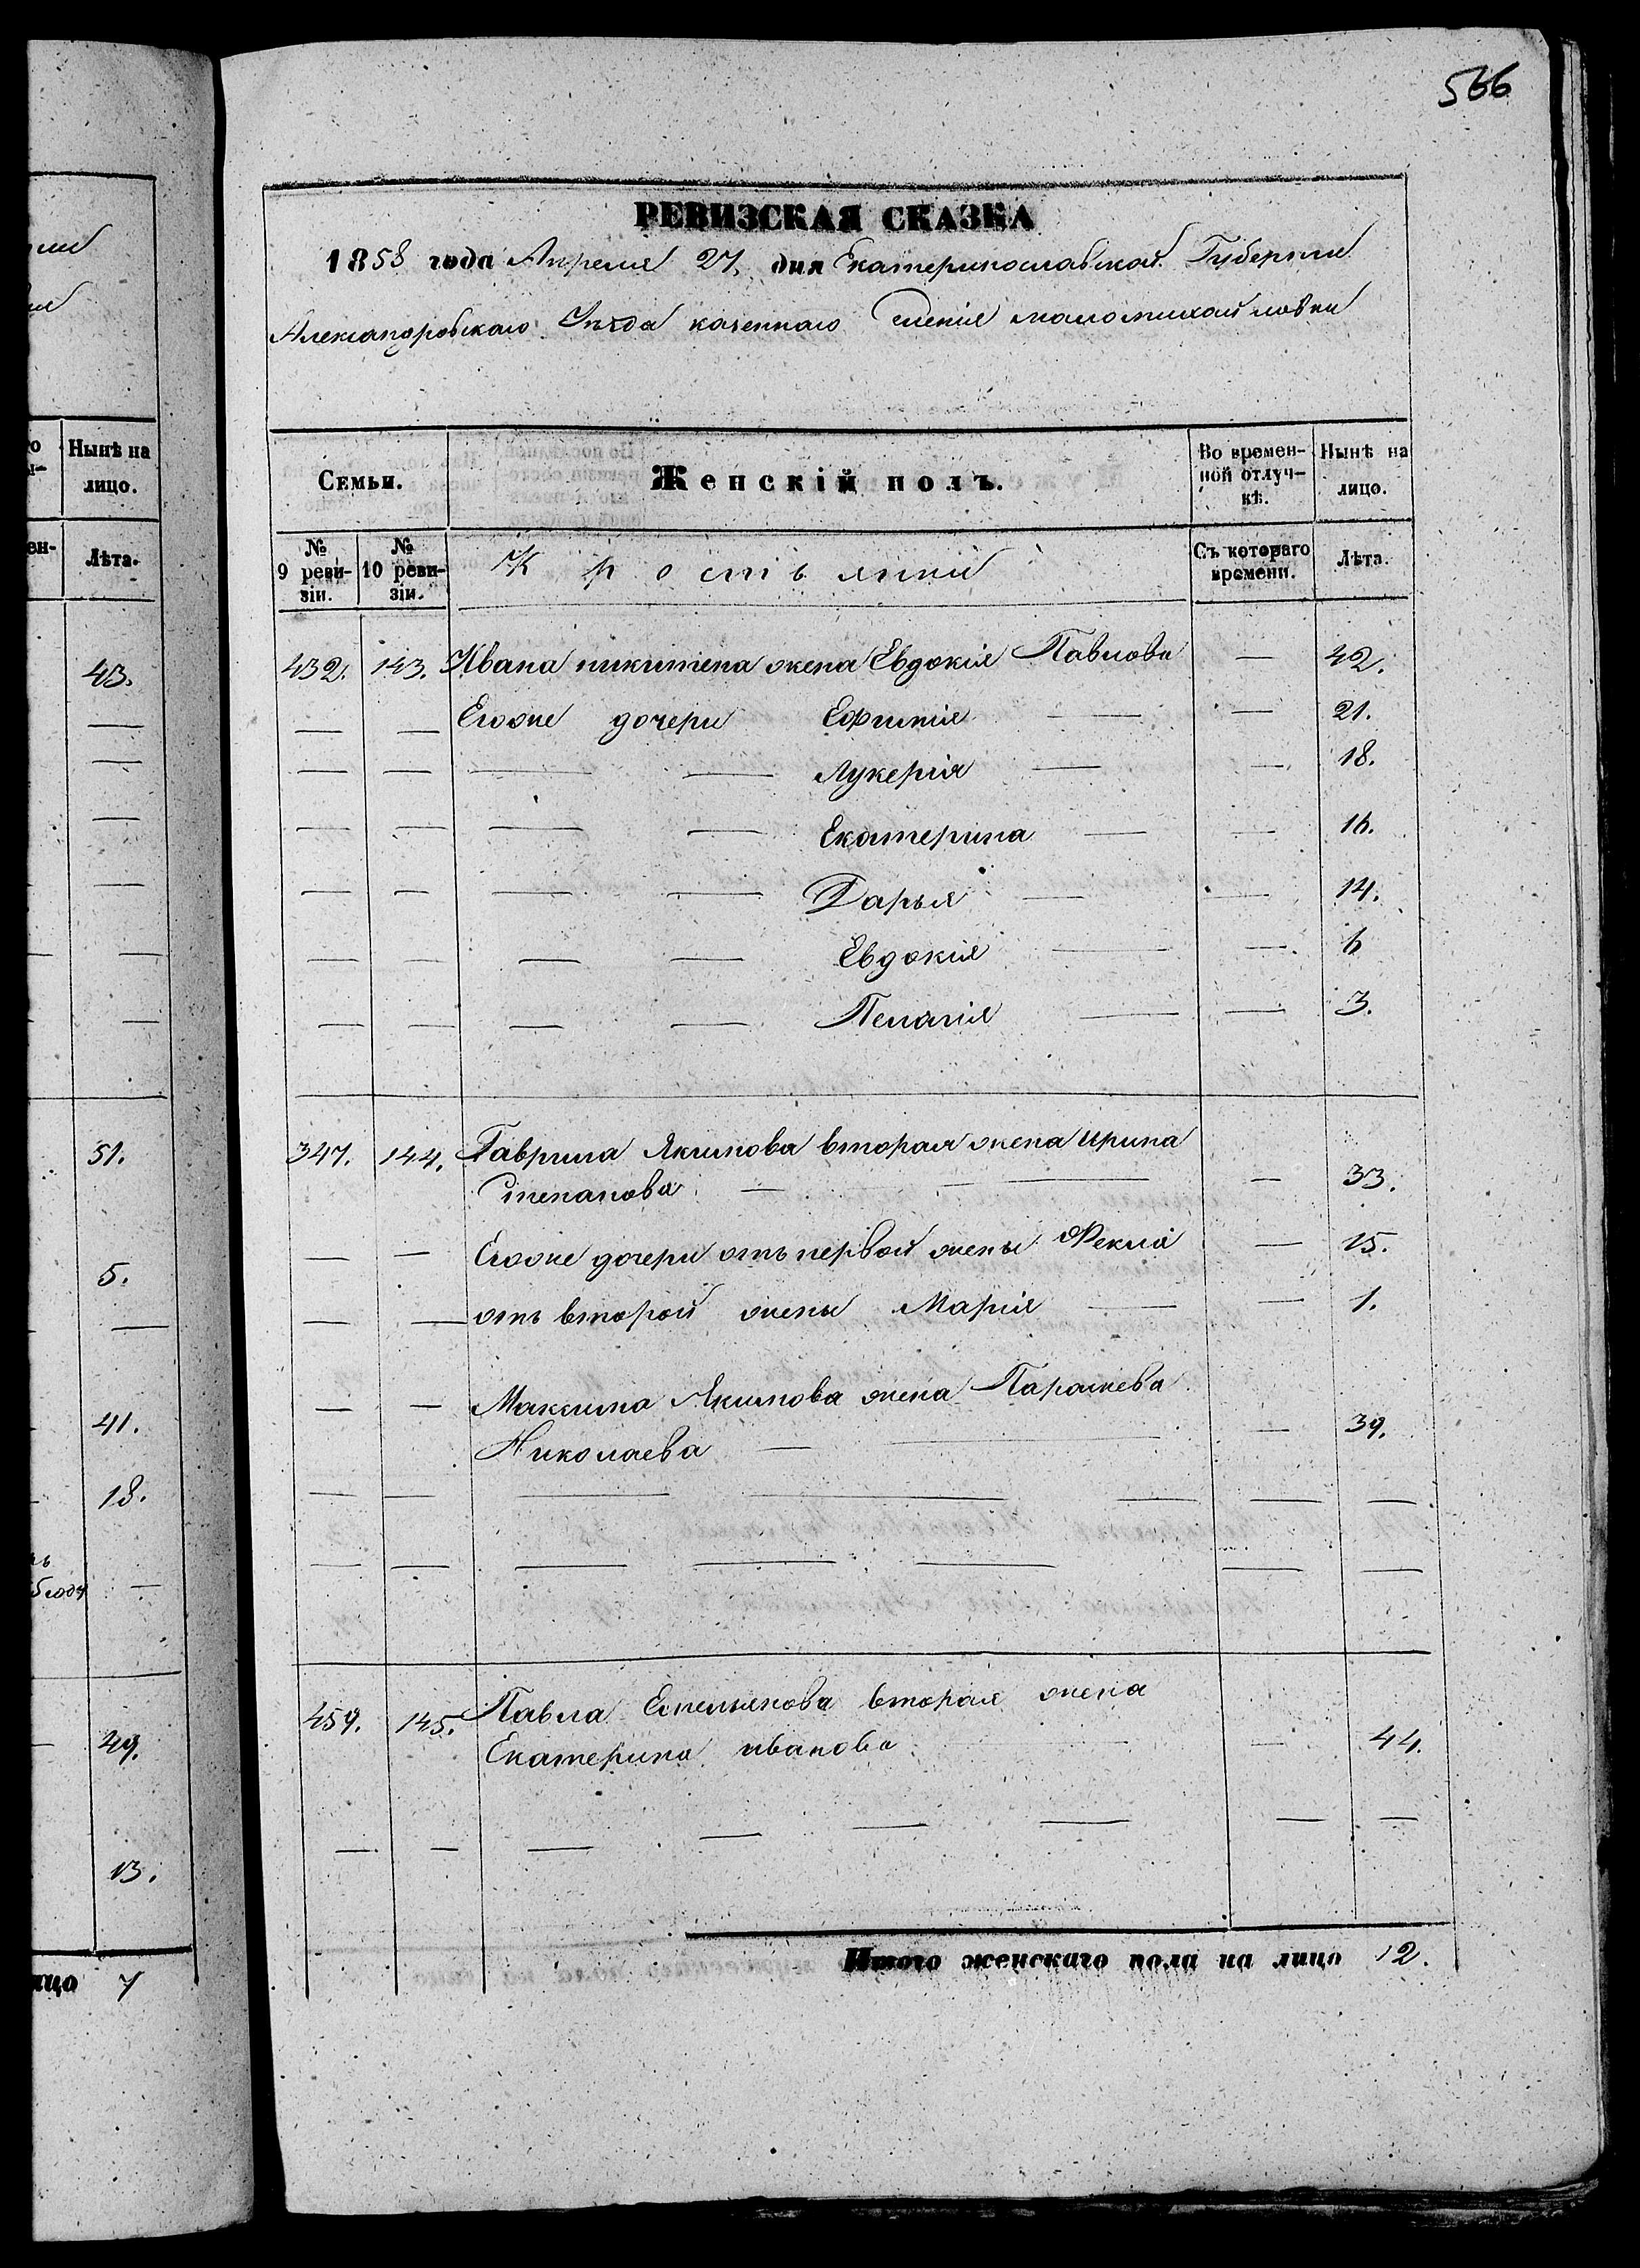 566
РЕВИЗСКАЯ СКАЗКА
1858 года Апреля 27. дня Екатеринославской Губерніи
Александровскаго Уѣзда казеннаго Селенія маломихайловки
Семьи.
Женскій полъ.
Во времен-
ной отлуч-
кѣ.
Нынѣ на
лицо.
№
9 реви-
зіи.
№
10 реви-
зіи.
Съ котораго
времени.
Лѣта.
432. 143. Ивана никитена жена Евдокія Павлова — 42.
— — Егоже дочери Ефимія — — 21.
— — — — Лукерія — — 18.
— — — — Екатерина — — 16.
— — — — Дарья — — 14.
— — — — Евдокія — — 6
— — — — Пелагія — — 3.
347. 144. Гаврила Якимова вторая жена Ирина
Степанова — — — — 33.
— — Егоже дочери отъ первой жены Фекла — 15.
— — отъ второй жены Марія — — 1.
— — Максима Якимова жена Параскева
Николаева — — — 39.
— — — — — — —
— — — — — — —
459. 145. Павла Емельянова вторая жена
Екатерина иванова — — 44.
— — — — — — — —
Итого женскаго пола на лицо 12.
Нынѣ на
лицо.
Лѣта.
43.
51.
5.
41.
18.
49.
13.
лицо 7